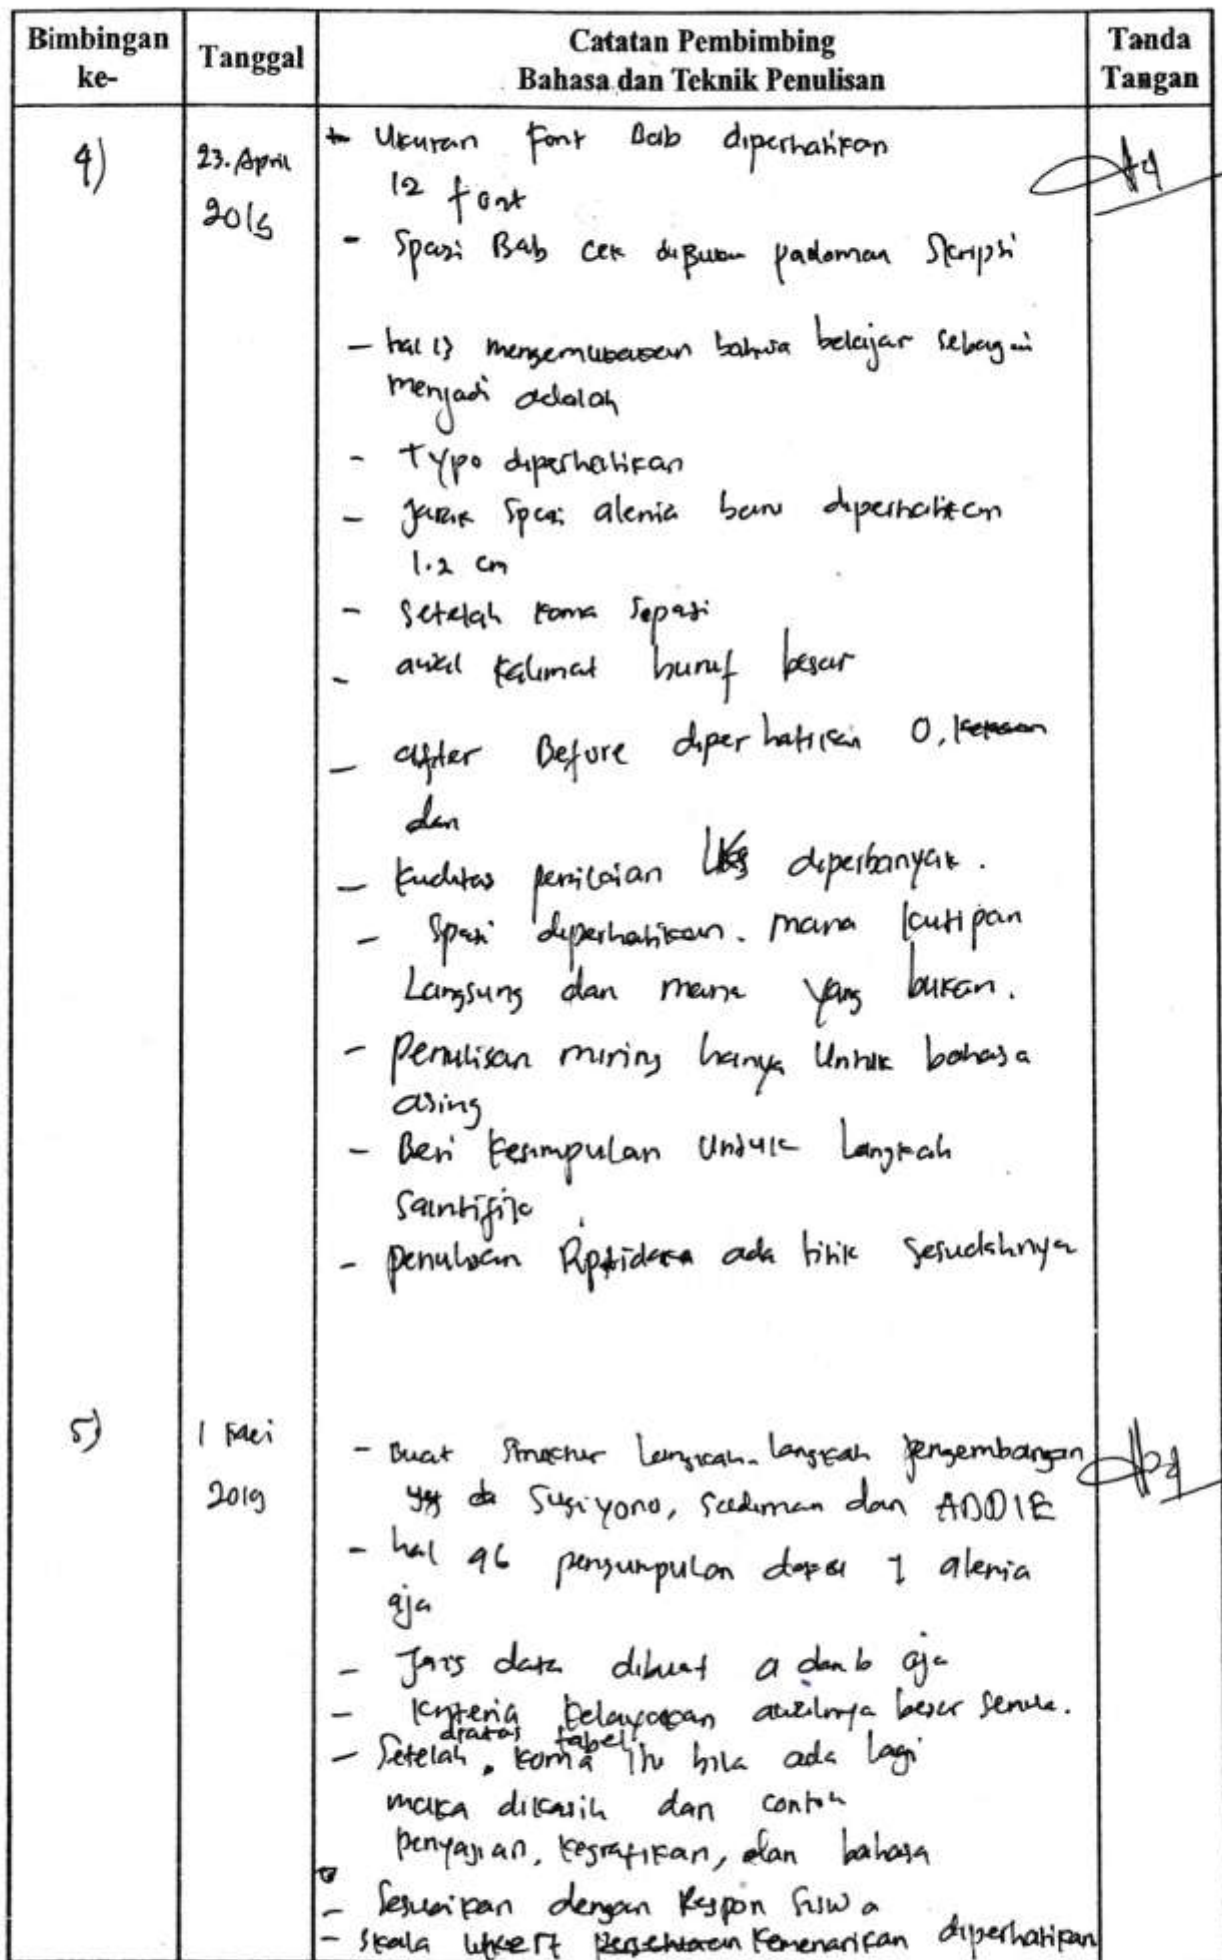 Bimbingan ke-
Tanggal
Catatan Pembimbing
Bahasa dan Teknik Penulisan
Tanda Tangan
4)
23. April
2019
- Ukuran font Bab diperhatikan
12 font
- Spasi Bab cek dibuku padoman Skripsi
- hal 13 mengemukakan bahwa belajar sebagai
menjadi adalah
- Typo diperhatikan
- Jarak Spasi alenia baru diperhatikan
1.2 cm
- Setelah koma Sepasi
- awal kalimat huruf besar
- after Before diperhatikan 0,
dan
- kualitas penilaian LKS diperbanyak.
- Spasi diperhatikan. mana kutipan
Langsung dan mana yang bukan.
- Penulisan miring hanya Untuk bahasa
asing
- Beri kesimpulan Untuk Langkah
Saintifik
- penulisan Rp tidak ada titik sesudahnya
5)
1 Mei
2019
- Buat Struktur Langkah-langkah pengembangan
Sugiyono, Sadiman dan ADDIE
- hal 96 pengumpulan data 1 alenia
aja
- Jenis data dibuat a dan b aja
- Kriteria kelayakan awalnya besar semua.
diatas tabel
- Setelah koma itu bila ada lagi
maka dikasih dan contoh
penyajian, kegrafikan, dan bahasa
- Sesuaikan dengan Respon Siswa
- Skala likert kemenarikan diperhatikan